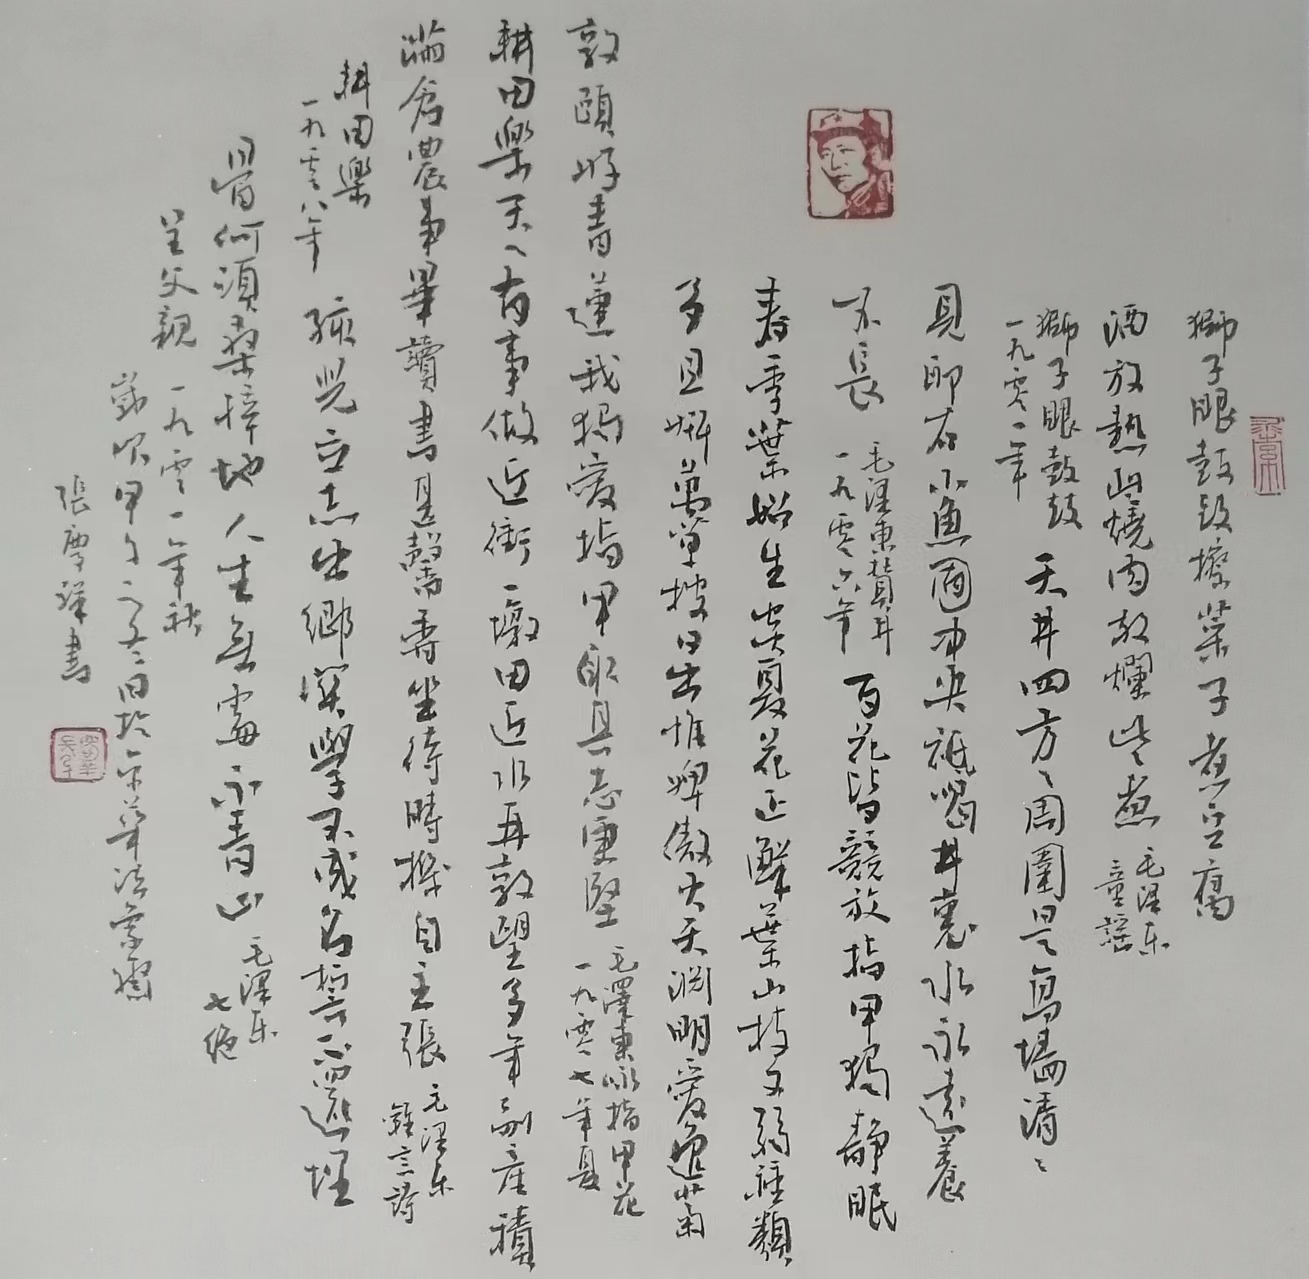 獅子眼鼓鼓擦菜子煮豆腐
酒放熱些燒肉放爛些煮
毛澤东
童謡
獅子眼鼓鼓
一九零一年
天井四方ミ周圍是高墻清ミ
見卵石小魚囿中央祗喝井裏水永遠養
不長
毛澤東賛井
一九零六年
百花皆競放指甲獨靜眠
春季葉始生炎夏花正鮮葉小枝又弱種類
多且妍萬草披日出惟婢傲火天淵明愛逸菊
敦頤好青蓮我獨愛指甲取其志更堅
毛澤東咏指甲花
一九零七年夏
耕田樂天ミ有事做近衝一墩田近水再敦望多年副産積
滿倉農事畢讀書甚馨香坐待時機自主張
毛澤东
雜言詩
耕田樂
一九零八年
孩兒立志出鄉関學不成名誓不還埋
骨何須桑梓地人生無處不青山
毛澤东
七绝
呈父親
一九零一年秋
張
書